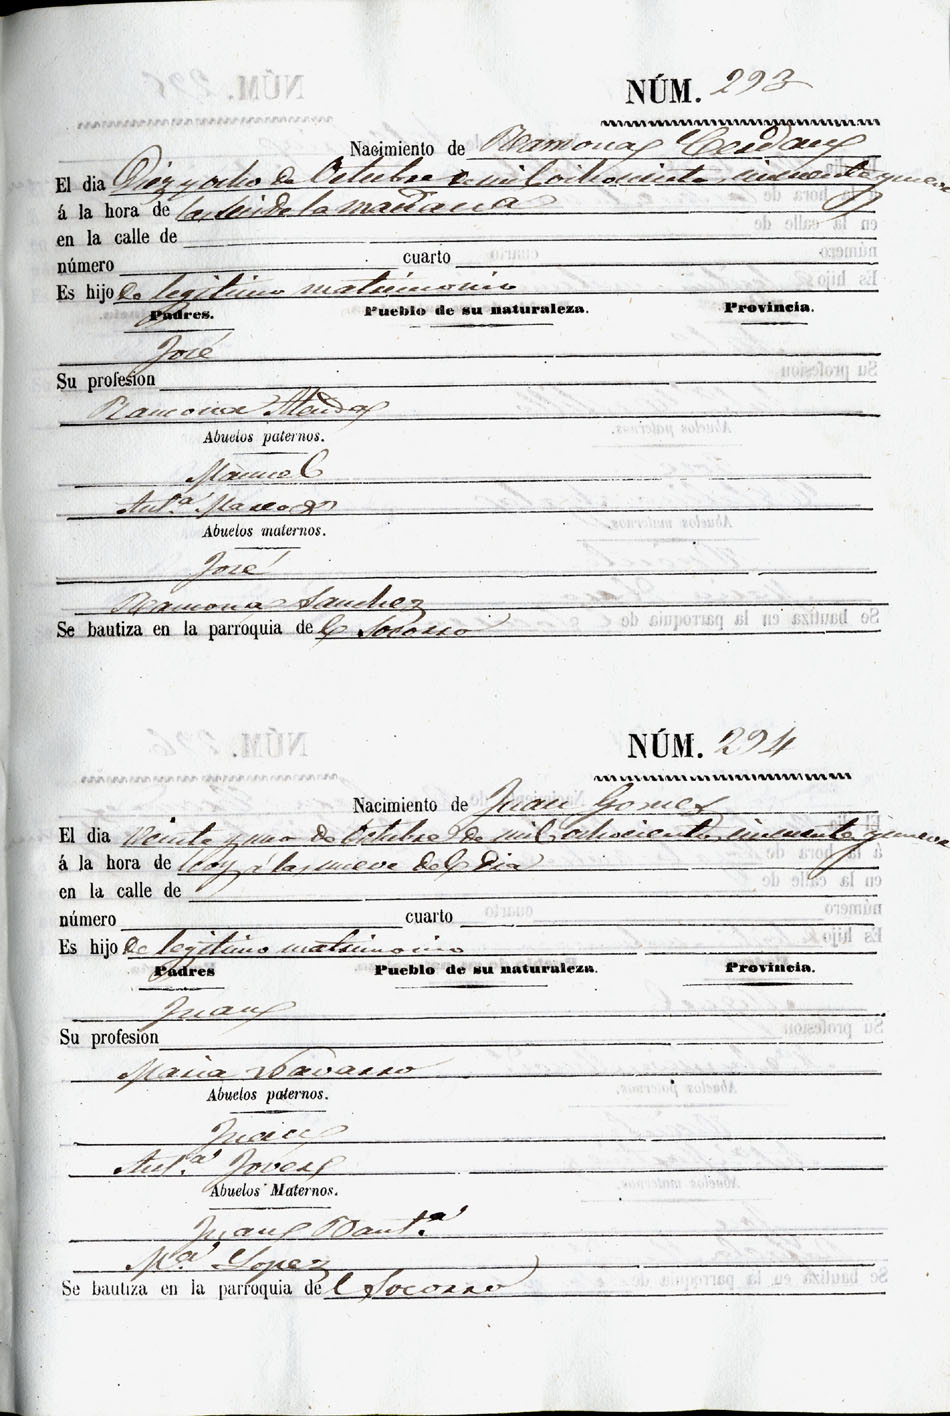 NÚM. 293
Nacimiento de Ramona Cerdan
El dia Diez y ocho de Octubre de mil ochociento cincuenta y nueve
á la hora de las seis de la mañana
en la calle de
número cuarto
Es hijo de legitimo matrimonio
Padres. Pueblo de su naturaleza. Provincia.
José
Su profesion
Ramona
Abuelos paternos.
Manuel
Ant.ª
Abuelos maternos.
José
Ramona Sanchez
Se bautiza en la parroquia del Socorro
NÚM. 294
Nacimiento de Juan Gomez
El dia Veinte y uno de Octubre de mil ochociento cincuenta y nueve
á la hora de hoy á las nueve del dia
en la calle de
número cuarto
Es hijo de legitimo matrimonio
Padres Pueblo de su naturaleza. Provincia.
Juan
Su profesion
Maria Navarro
Abuelos paternos.
Juan
Ant.ª Jover
Abuelos Maternos.
Juan Baut.ª
M.ª Lopez
Se bautiza en la parroquia del Socorro